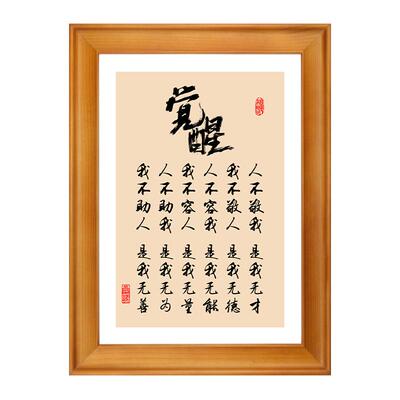 觉醒
人不敬我 是我无才
我不敬人 是我无德
人不容我 是我无能
我不容人 是我无量
人不助我 是我无为
我不助人 是我无善